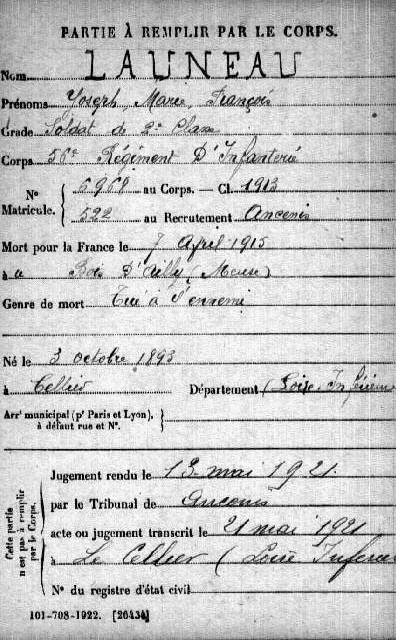 PARTIE À REMPLIR PAR LE CORPS.
Nom LAUNEAU
Prénoms Joseph Marie François
Grade Soldat de 2e Classe
Corps 56e Régiment D'Infanterie
N° Matricule. { 5968 au Corps. — Cl. 1913
522 au Recrutement Ancenis
Mort pour la France le 7 Avril 1915
à a Bois D'Ailly (Meuse)
Genre de mort Tué à l'ennemi
Né le 3 octobre 1893
à Cellier Département (Loire Inférieure
Arr' municipal (p' Paris et Lyon),
à défaut rue et N°.
Cette partie n'est pas à remplir par le Corps.
Jugement rendu le 13 mai 1921.
par le Tribunal de Ancenis
acte ou jugement transcrit le 21 mai 1921
à Le Cellier (Loire Infere
N° du registre d'état civil
101-708-1922. [26434]